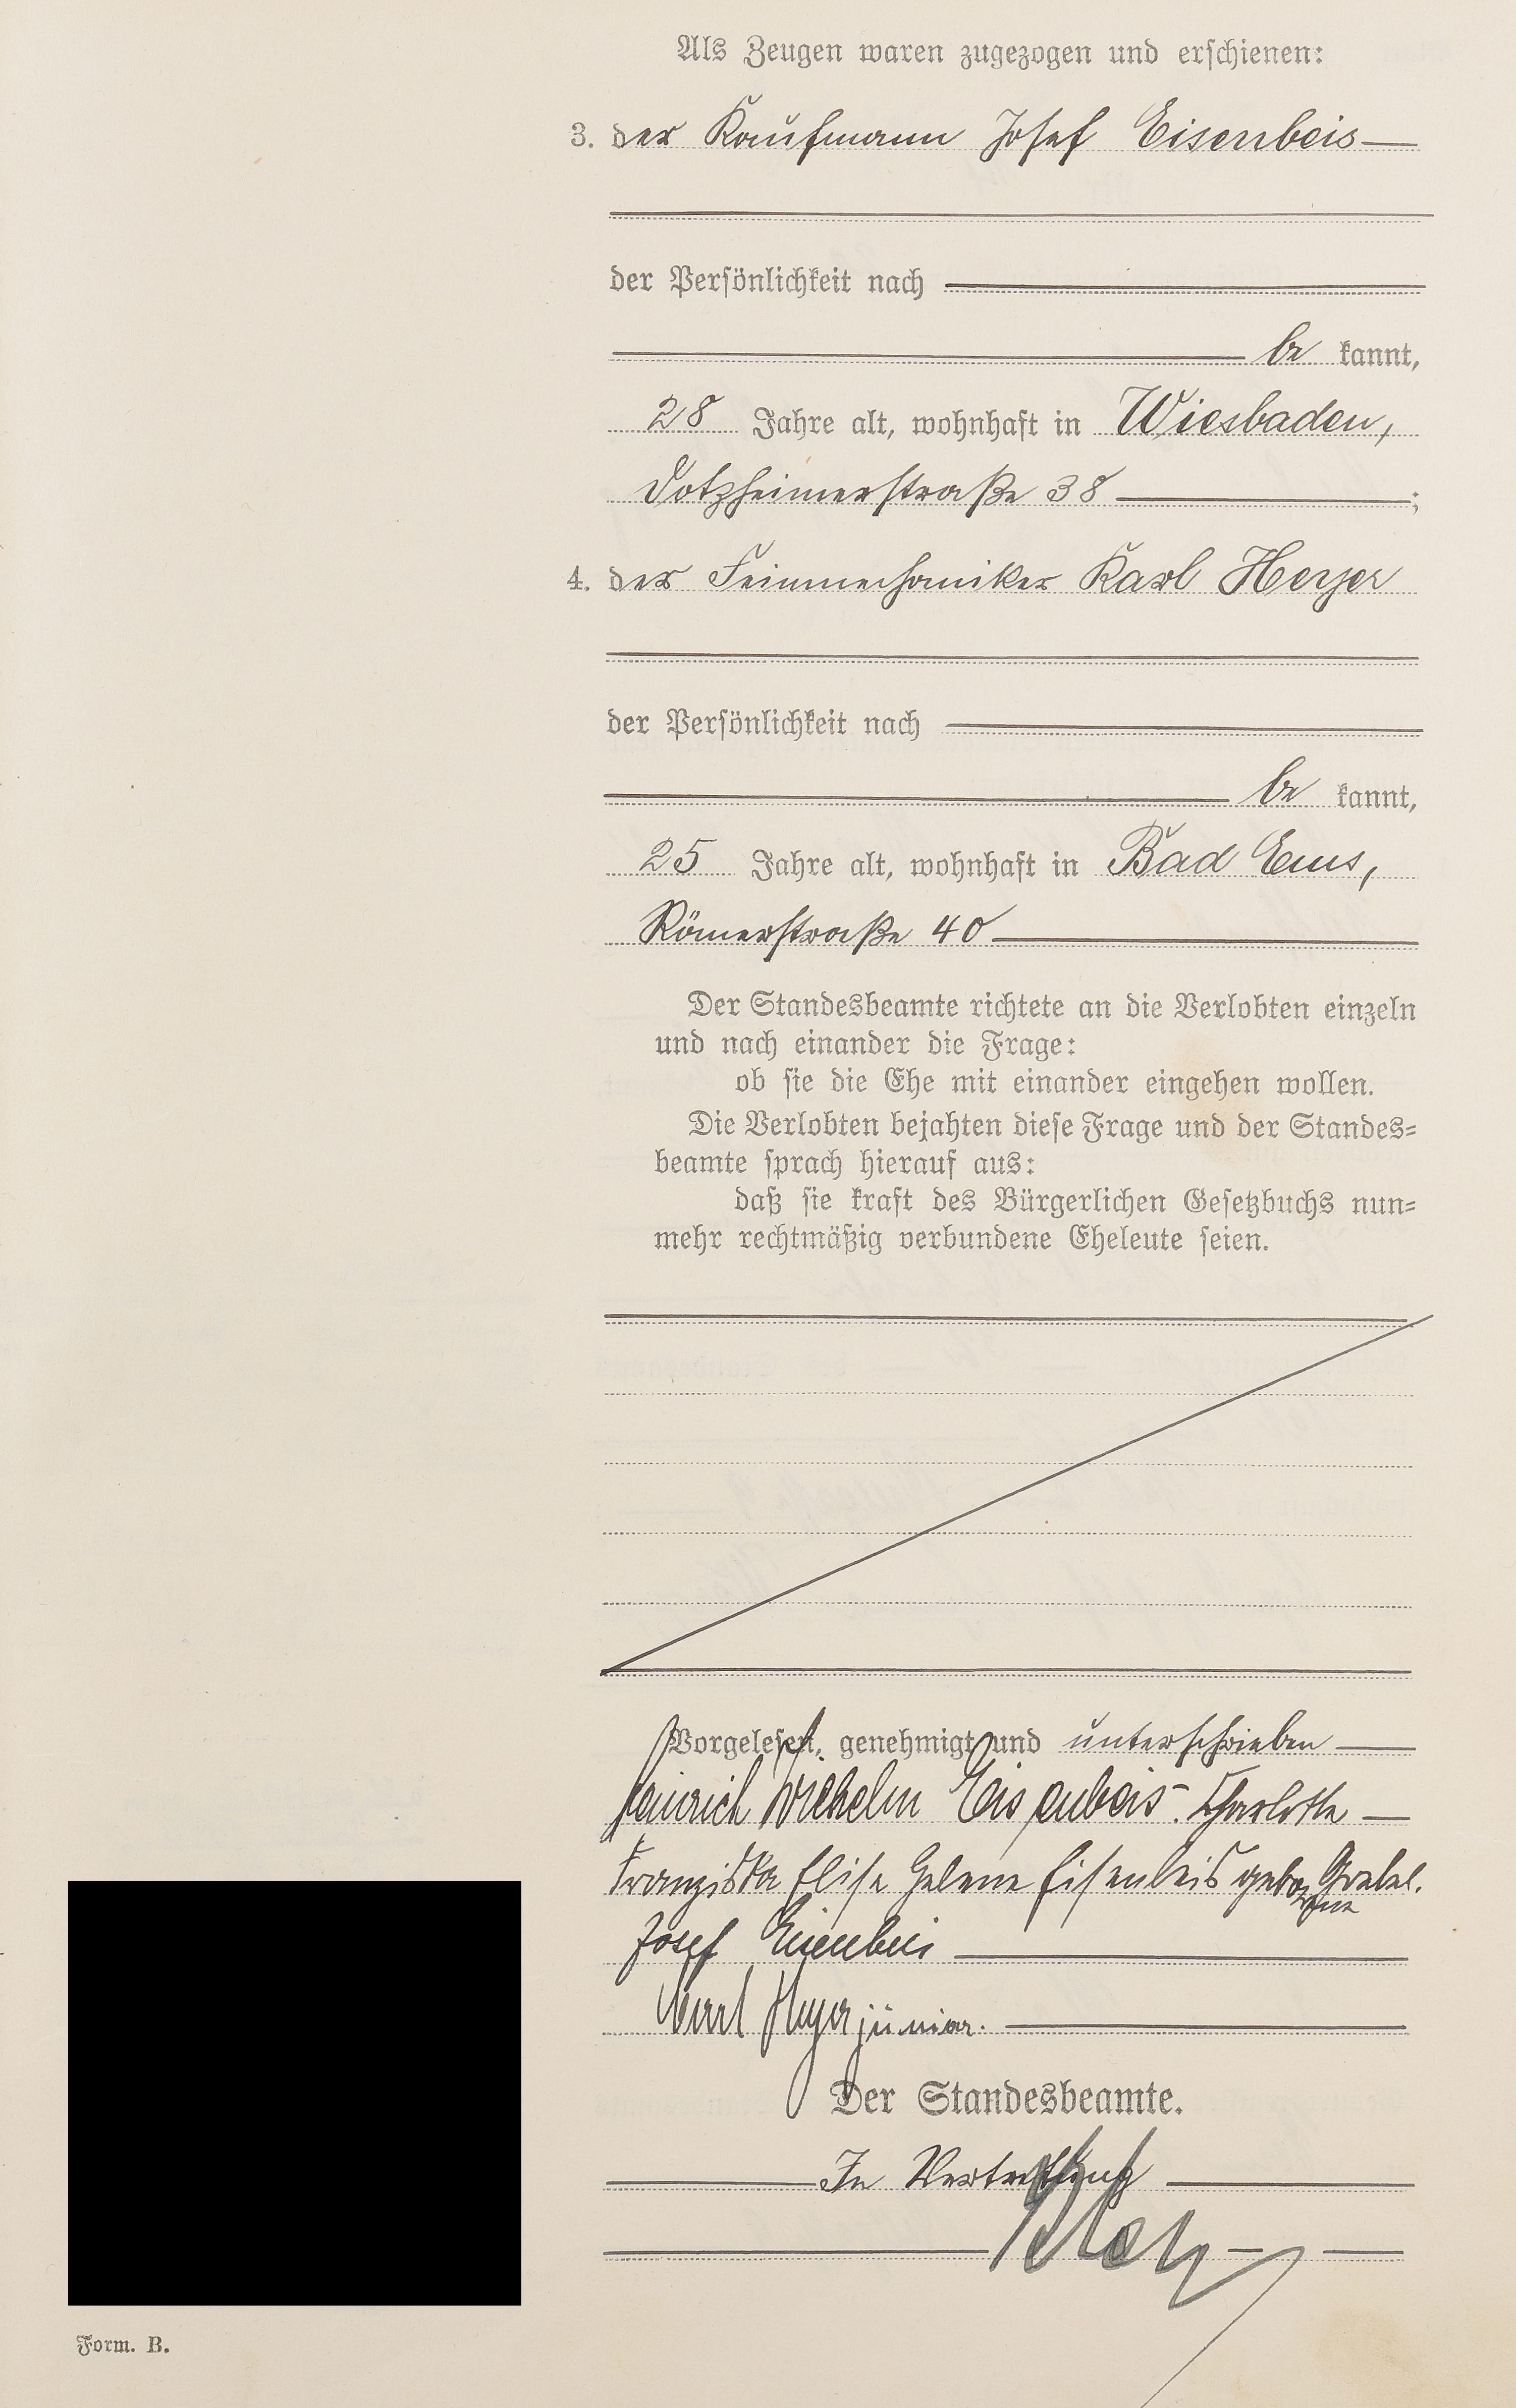 Als Zeugen waren zugezogen und erschienen:
3. der Kaufmann Josef Eisenbeis
der Persönlichkeit nach
be kannt,
28 Jahre alt, wohnhaft in Wiesbaden,
Dotzheimerstraße 38 ;
4. der Feinmechaniker Karl Heyer
der Persönlichkeit nach
be kannt,
25 Jahre alt, wohnhaft in Bad Ems,
Römerstraße 40
Der Standesbeamte richtete an die Verlobten einzeln
und nach einander die Frage:
ob sie die Ehe mit einander eingehen wollen.
Die Verlobten bejahten diese Frage und der Standes-
beamte sprach hierauf aus:
daß sie kraft des Bürgerlichen Gesetzbuchs nun-
mehr rechtmäßig verbundene Eheleute seien.
Vorgelesen, genehmigt und unterschrieben
Heinrich Wilhelm Eisenbeis. Charlotte
Franziska Elise Helene Eisenbeis geborene Grebel.
Josef Eisenbeis
Karl Heyer junior.
Der Standesbeamte.
In Vertretung
Form. B.